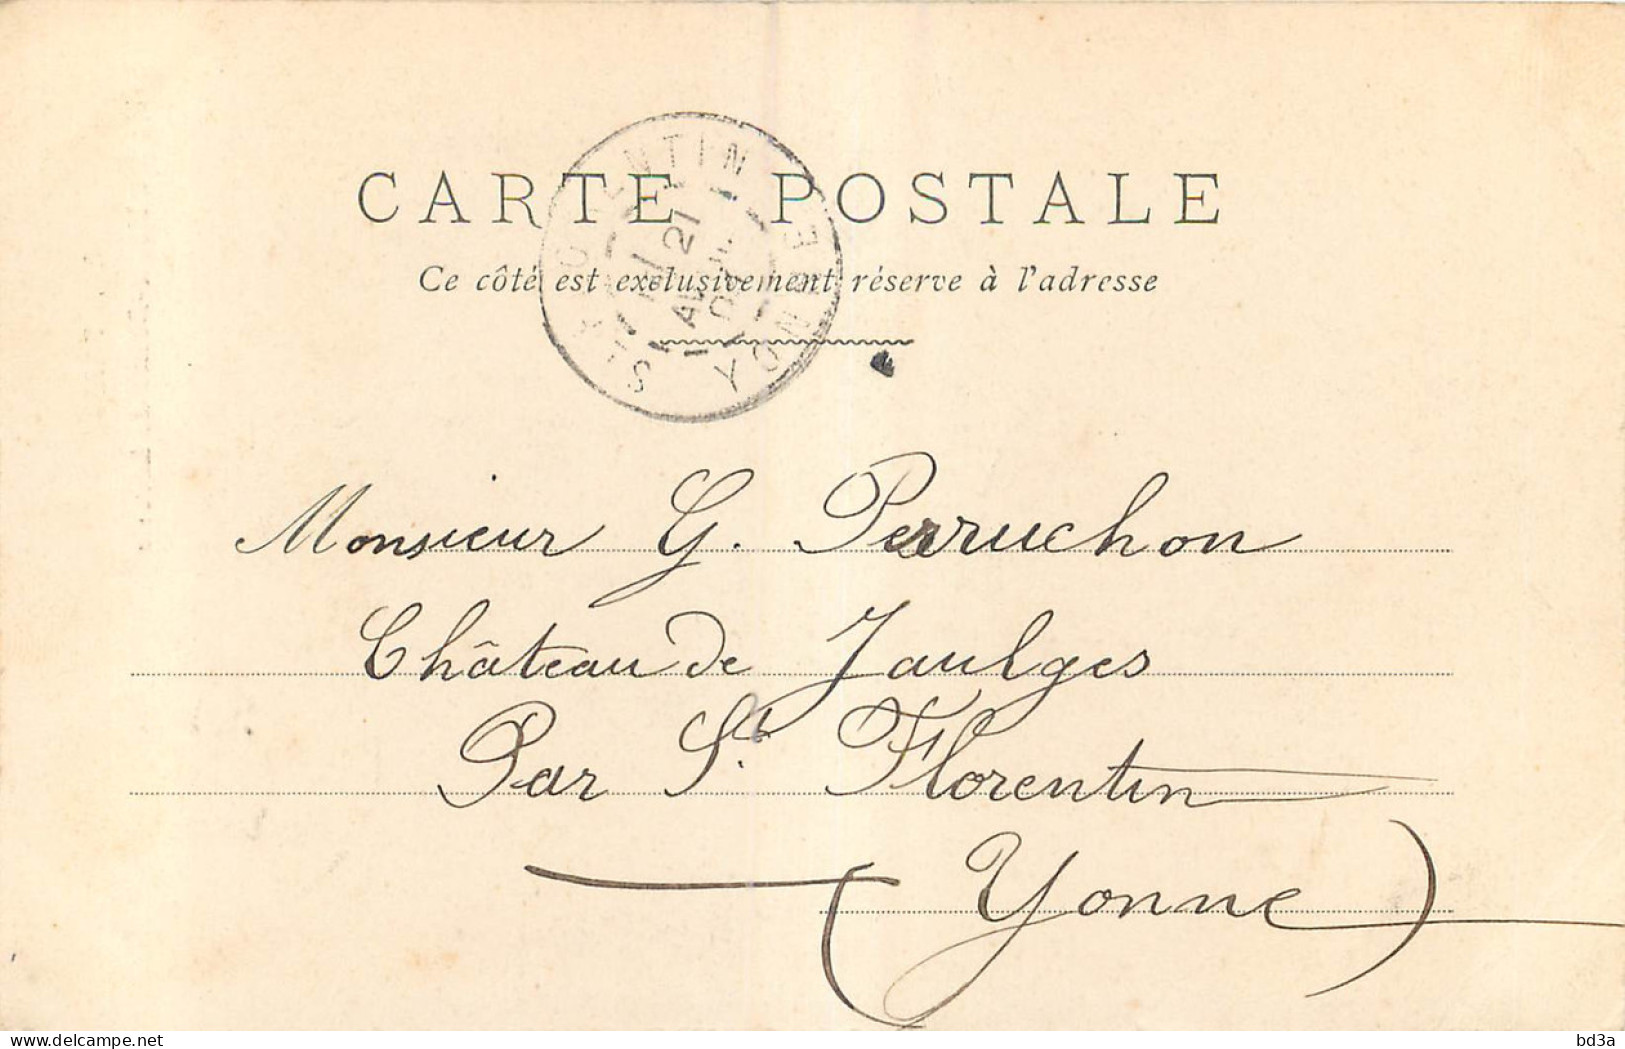 CARTE POSTALE
Ce côté est exclusivement réserve à l'adresse
ST FLORENTIN
21
YONNE
Monsieur G. Perruchon
Château de Jaulges
Par St Florentin
(Yonne)
www.delcampe.net
bd3a